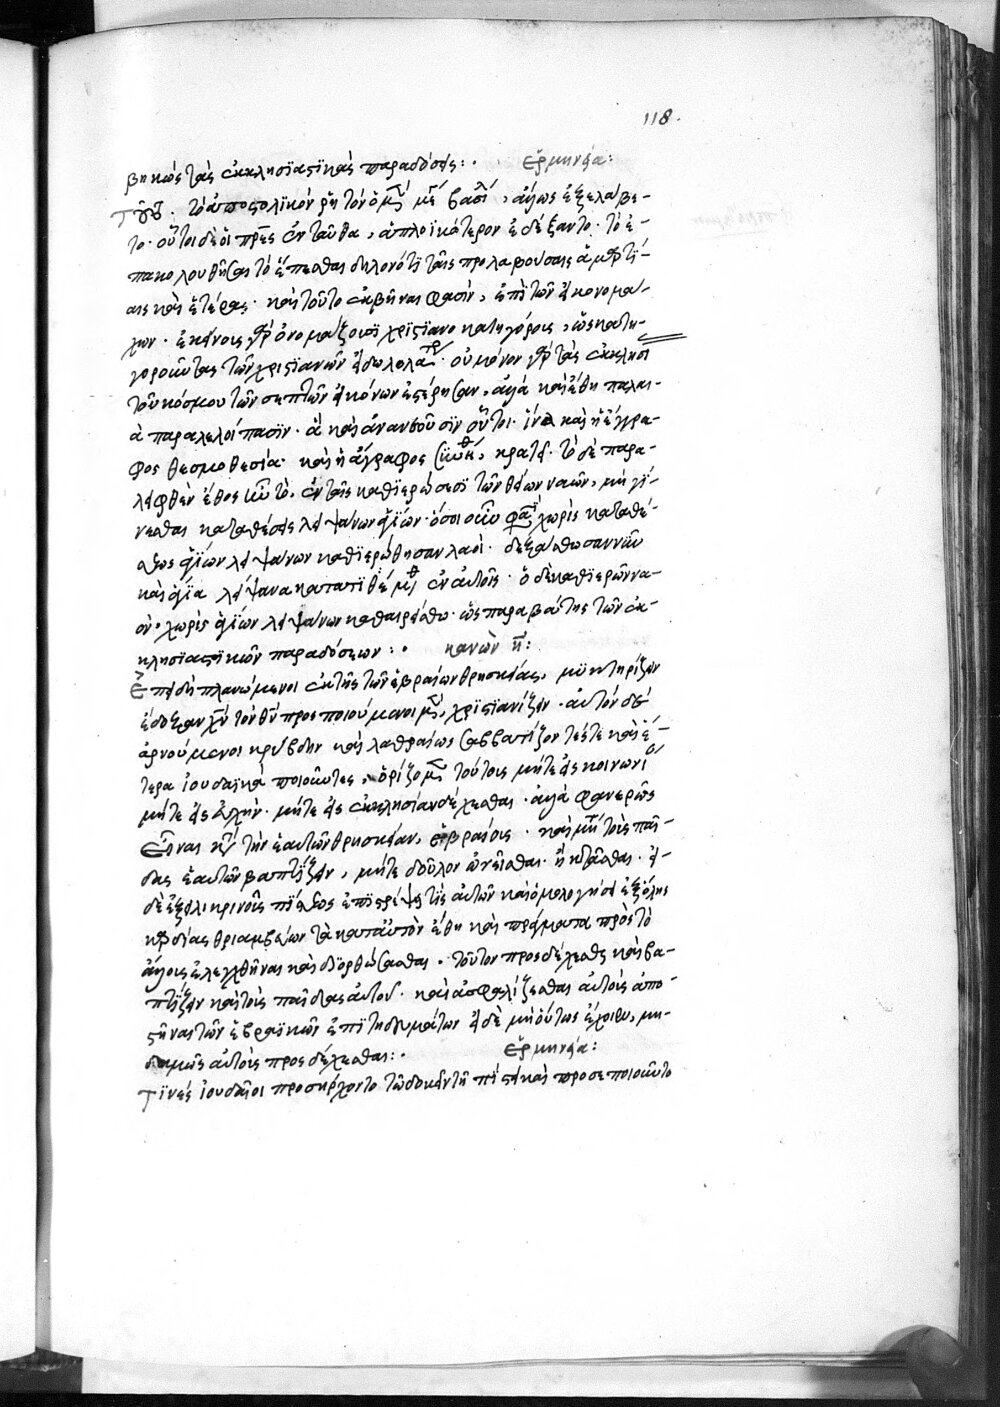 118.
βηκὼς τὰς ἐκκλησιαστικὰς παραδόσεις: · ἑρμηνεία:
τὸ ἀποστολικὸν ῥητὸν ὁ μὲν μέγας βασίλειος, ἄλλως ἐξελάβε-
το· οὗτοι δὲ οἱ πρες ἐνταῦθα, ἁπλοϊκότερον ἐδέξαντο· τὸ ἐ-
πακολουθῆσαι τὸ ἕπεσθαι δηλονότι ταῖς προλαβούσαις ἁμαρτί-
αις καὶ ἑτέρας· καὶ τοῦτο ἐκβῆναι φασὶν, ἐπὶ τῶν εἰκονομά-
χων· ἐκείνους γὰρ ὀνομάζουσι χριστιανοκατηγόρους, ὡς κατη-
γοροῦντας τῶν χριστιανῶν εἰδωλολα τρ · οὐ μόνον γὰρ τὰς ἐκκλησί
τοῦ κόσμου τῶν σεπτῶν εἰκόνων ἐστέρησαν, ἀλλὰ καὶ ἔθη παλαι-
ὰ παραλελοίπασιν· ἃ καὶ ἀνανεοῦσιν οὗτοι· ἵνα καὶ ἡ ἔγγρα-
φος θεσμοθεσία· καὶ ἡ ἄγραφος συνήθεια, κρατῇ· τὸ δὲ παρα-
λειφθὲν ἔθος ἦν τὸ, ἐν ταῖς καθιερώσεσι τῶν θείων ναῶν, μὴ γί-
νεσθαι καταθέσεις λειψάνων ἁγίων· ὅσοι οὖν φασι χωρὶς καταθέ-
σεως ἁγίων λειψάνων καθιερώθησαν λαοὶ· δεξάσθωσαν νῦν
καὶ ἅγια λείψανα κατατιθέμενα ἐν αὐτοῖς· ὁ δὲ καθιερῶν να-
ὸν· χωρὶς ἁγίων λειψάνων καθαιρείσθω· ὡς παραβάτης τῶν ἐκ-
κλησιαστικῶν παραδόσεων: · κανὼν η:
Ἐπειδὴ πλανώμενοι ἐκ τῆς τῶν ἑβραίων θρησκείας, μυκτηρίζειν
ἔδοξαν χν τὸν θν προσποιούμενοι μὲν, χριστιανίζειν· αὐτὸν δὲ
ἀρνούμενοι κρύβδην καὶ λαθραίως σαββατίζοντές τε καὶ ἕ-
τερα ἰουδαϊκὰ ποιοῦντες, ὁρίζομεν τούτους μήτε εἰς κοινωνί
μήτε εἰς εὐχὴν· μήτε εἰς ἐκκλησίαν δέχεσθαι· ἀλλὰ φανερῶς
εἶναι κατὰ τὴν ἑαυτῶν θρησκείαν, ἑβραίους· καὶ μήτε τοὺς παῖ-
δας ἑαυτῶν βαπτίζειν, μήτε δοῦλον ὠνεῖσθαι· ἢ κτᾶσθαι· εἰ
δὲ ἐξ εἰλικρινοῦς πίστεως ἐπιστρέψει τὶς αὐτῶν καὶ ὁμολογήσει ἐξ ὅλης
καρδίας θριαμβεύων τὰ κατ' αὐτὸν ἔθη καὶ πράγματα πρὸς τὸ
ἄλλους ἐλεγχθῆναι καὶ διορθώσασθαι· τοῦτον προσδέχεσθαι καὶ βα-
πτίζειν καὶ τοὺς παῖδας αὐτοῦ· καὶ ἀσφαλίζεσθαι αὐτοὺς ἀπο-
στῆναι τῶν ἑβραϊκῶν ἐπιτηδευμάτων εἰ δὲ μὴ οὕτως ἔχοιεν, μη-
δαμῶς αὐτοὺς προσδέχεσθαι: · ἑρμηνεία:
Τινὲς ἰουδαῖοι προσήρχοντο τῷ δοκεῖν τῇ πίστει καὶ προσεποιοῦντο